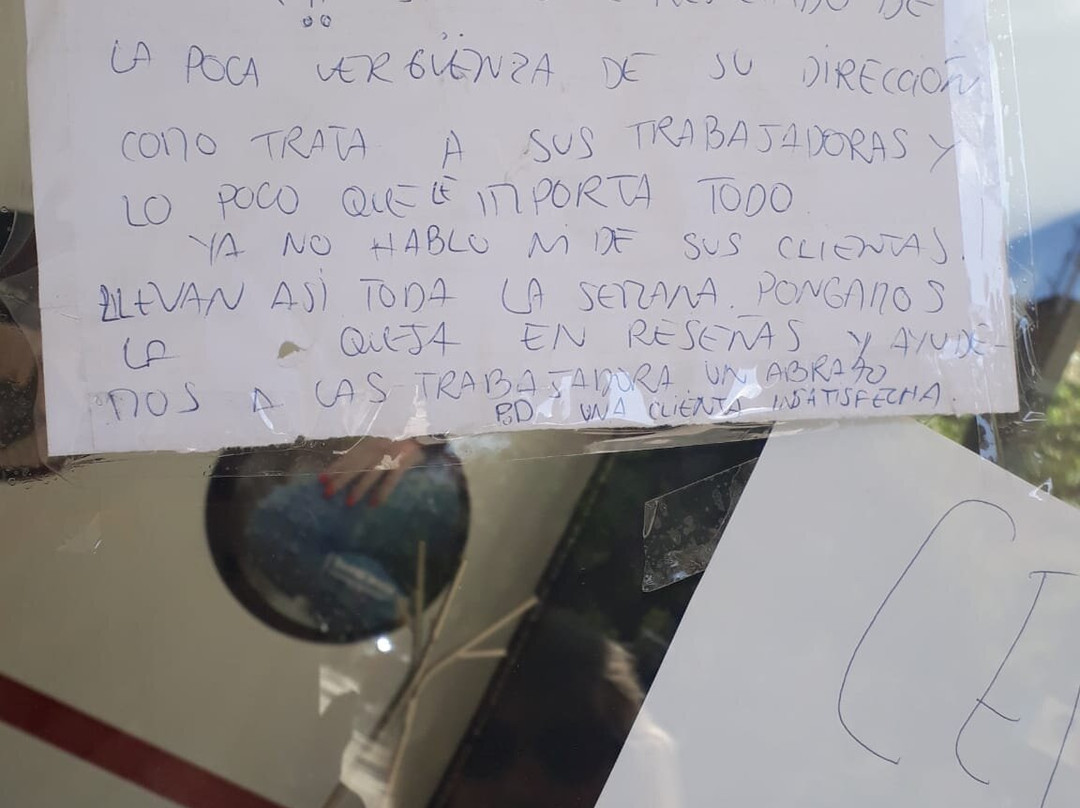 DE
LA POCA VERGÜENZA DE SU DIRECCIÓN
COMO TRATA A SUS TRABAJADORAS Y
LO POCO QUE LE IMPORTA TODO
YA NO HABLO NI DE SUS CLIENTAS.
LLEVAN ASÍ TODA LA SEMANA. PONGAMOS
LA QUEJA EN RESEÑAS Y AYUDE-
MOS A LAS TRABAJADORA. UN ABRAZO
PD: UNA CLIENTA INSATISFECHA.
CE